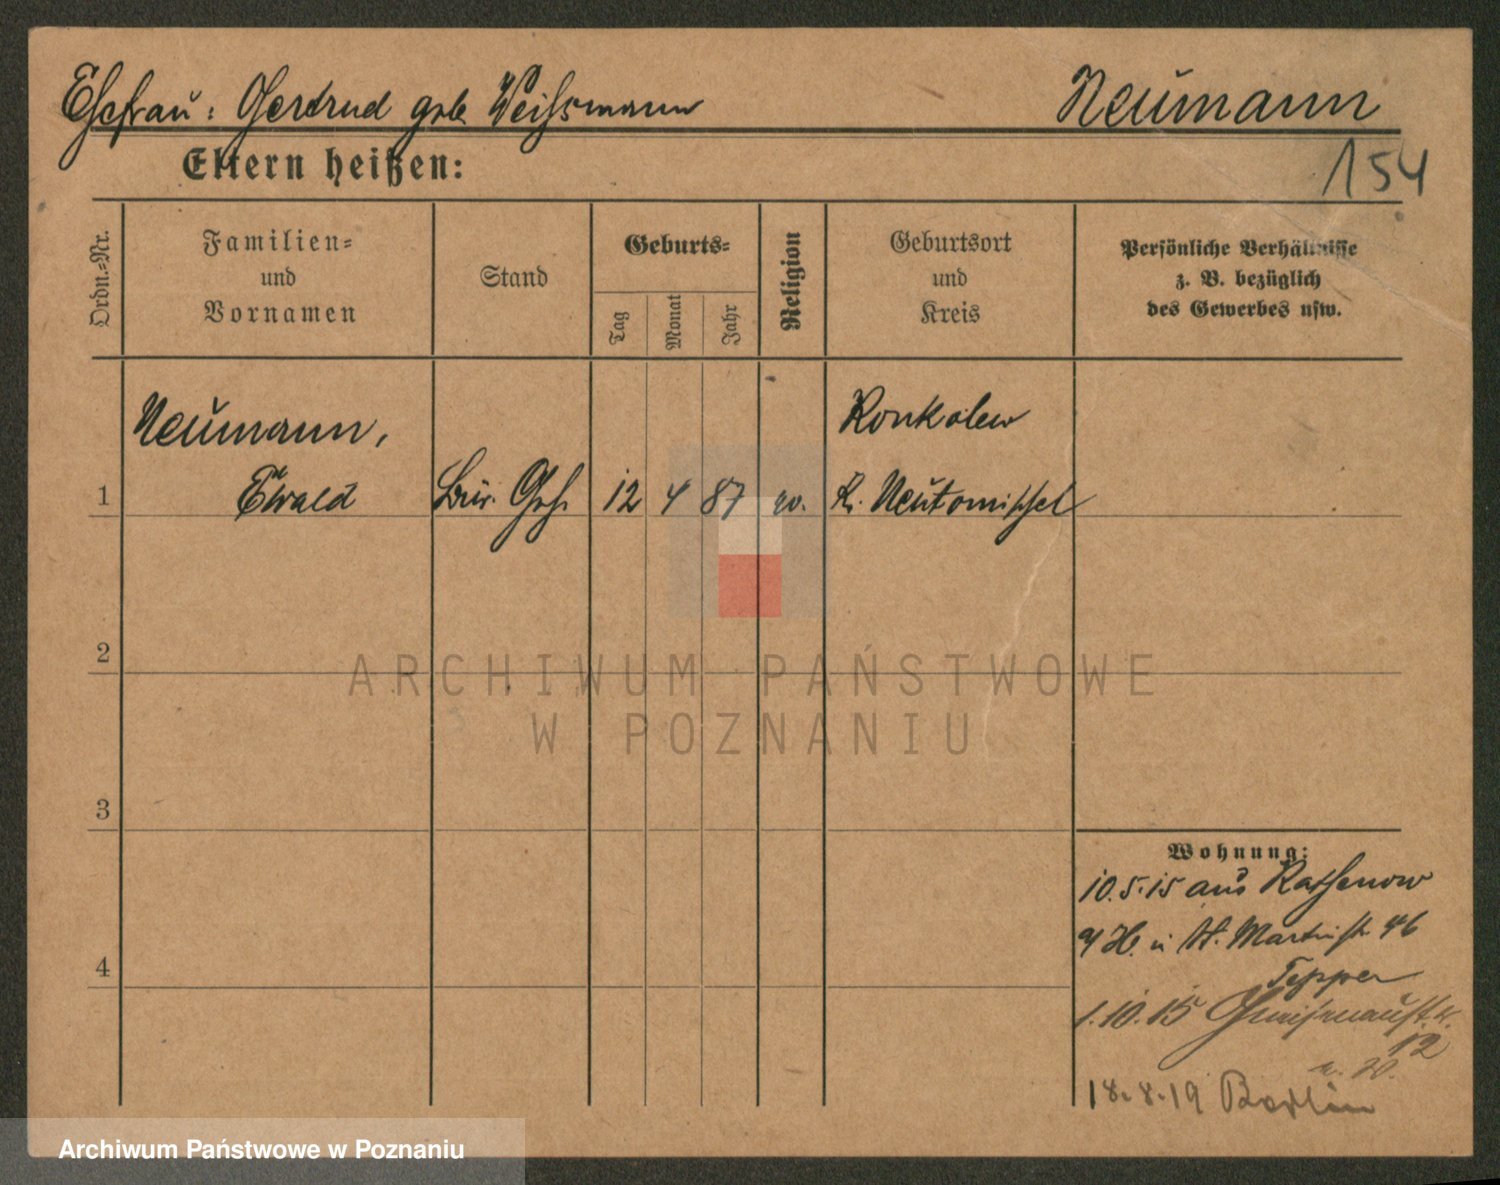 Ehefrau: Gertrud geb. Weissmann
Neumann
154
Eltern heißen:
Ordn.-Nr.
Familien-
und
Vornamen
Stand
Geburts-
Tag
Monat
Jahr
Religion
Geburtsort
und
Kreis
Persönliche Verhältnisse
z. B. bezüglich
des Gewerbes usw.
Neumann,
Ewald
1
Bür. Geh.
12
4
87
ev.
Konkolew
K. Neutomischel
2
3
4
Wohnung:
10.5.15 aus Rathenow
St. Martinstr. 46
Tepper
1.10.15 Gneisenaustr.
12
18.8.19 Berlin
ARCHIWUM PAŃSTWOWE
W POZNANIU
Archiwum Państwowe w Poznaniu